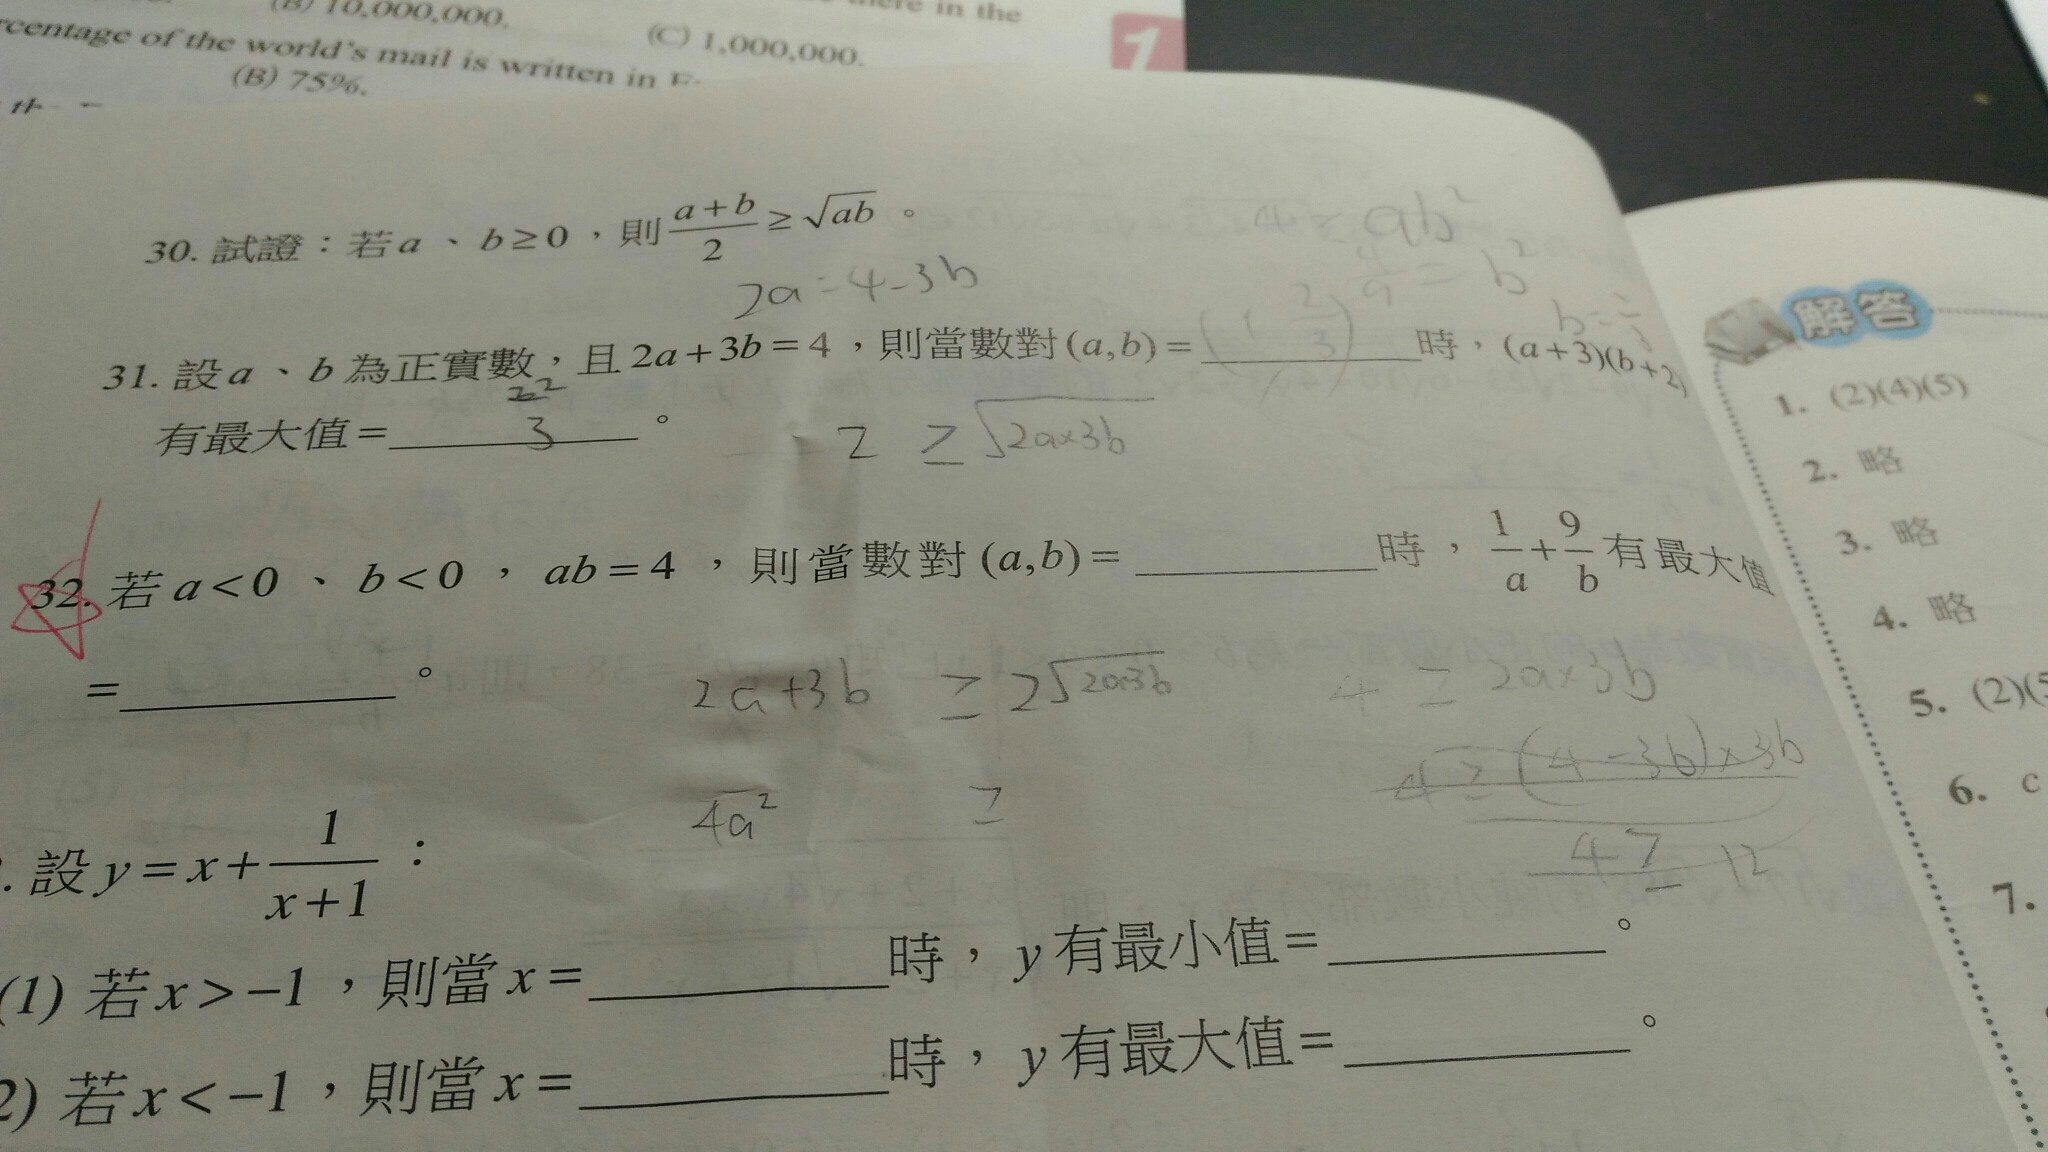 there in the
(B) 10,000,000.
(C) 1,000,000.
1
centage of the world's mail is written in
(B) 75%.
30. 試證：若 a 、 b ≥ 0 ，則 (a+b)/2 ≥ √ab 。
4 ≥ ab²
4/a = b²
2a = 4 - 3b
31. 設 a 、 b 為正實數，且 2a + 3b = 4 ，則當數對 (a,b) = (1 2/3) 時，(a+3)(b+2)
有最大值 = 3 。
2 ≥ √2a×3b
32. 若 a < 0 、 b < 0 ， ab = 4 ，則當數對 (a,b) = ________ 時， 1/a + 9/b 有最大值
= ________ 。
2a + 3b ≥ 2√2a3b
4 ≥ 2a×3b
4 ≥ (4 - 3b)×3b
4a² ≥
4 ≥ 12
. 設 y = x + 1/(x+1) ：
(1) 若 x > −1 ，則當 x = ________ 時， y 有最小值 = ________ 。
2) 若 x < −1 ，則當 x = ________ 時， y 有最大值 = ________ 。
解答
1. (2)(4)(5)
2. 略
3. 略
4. 略
5. (2)(5
6. c
7.